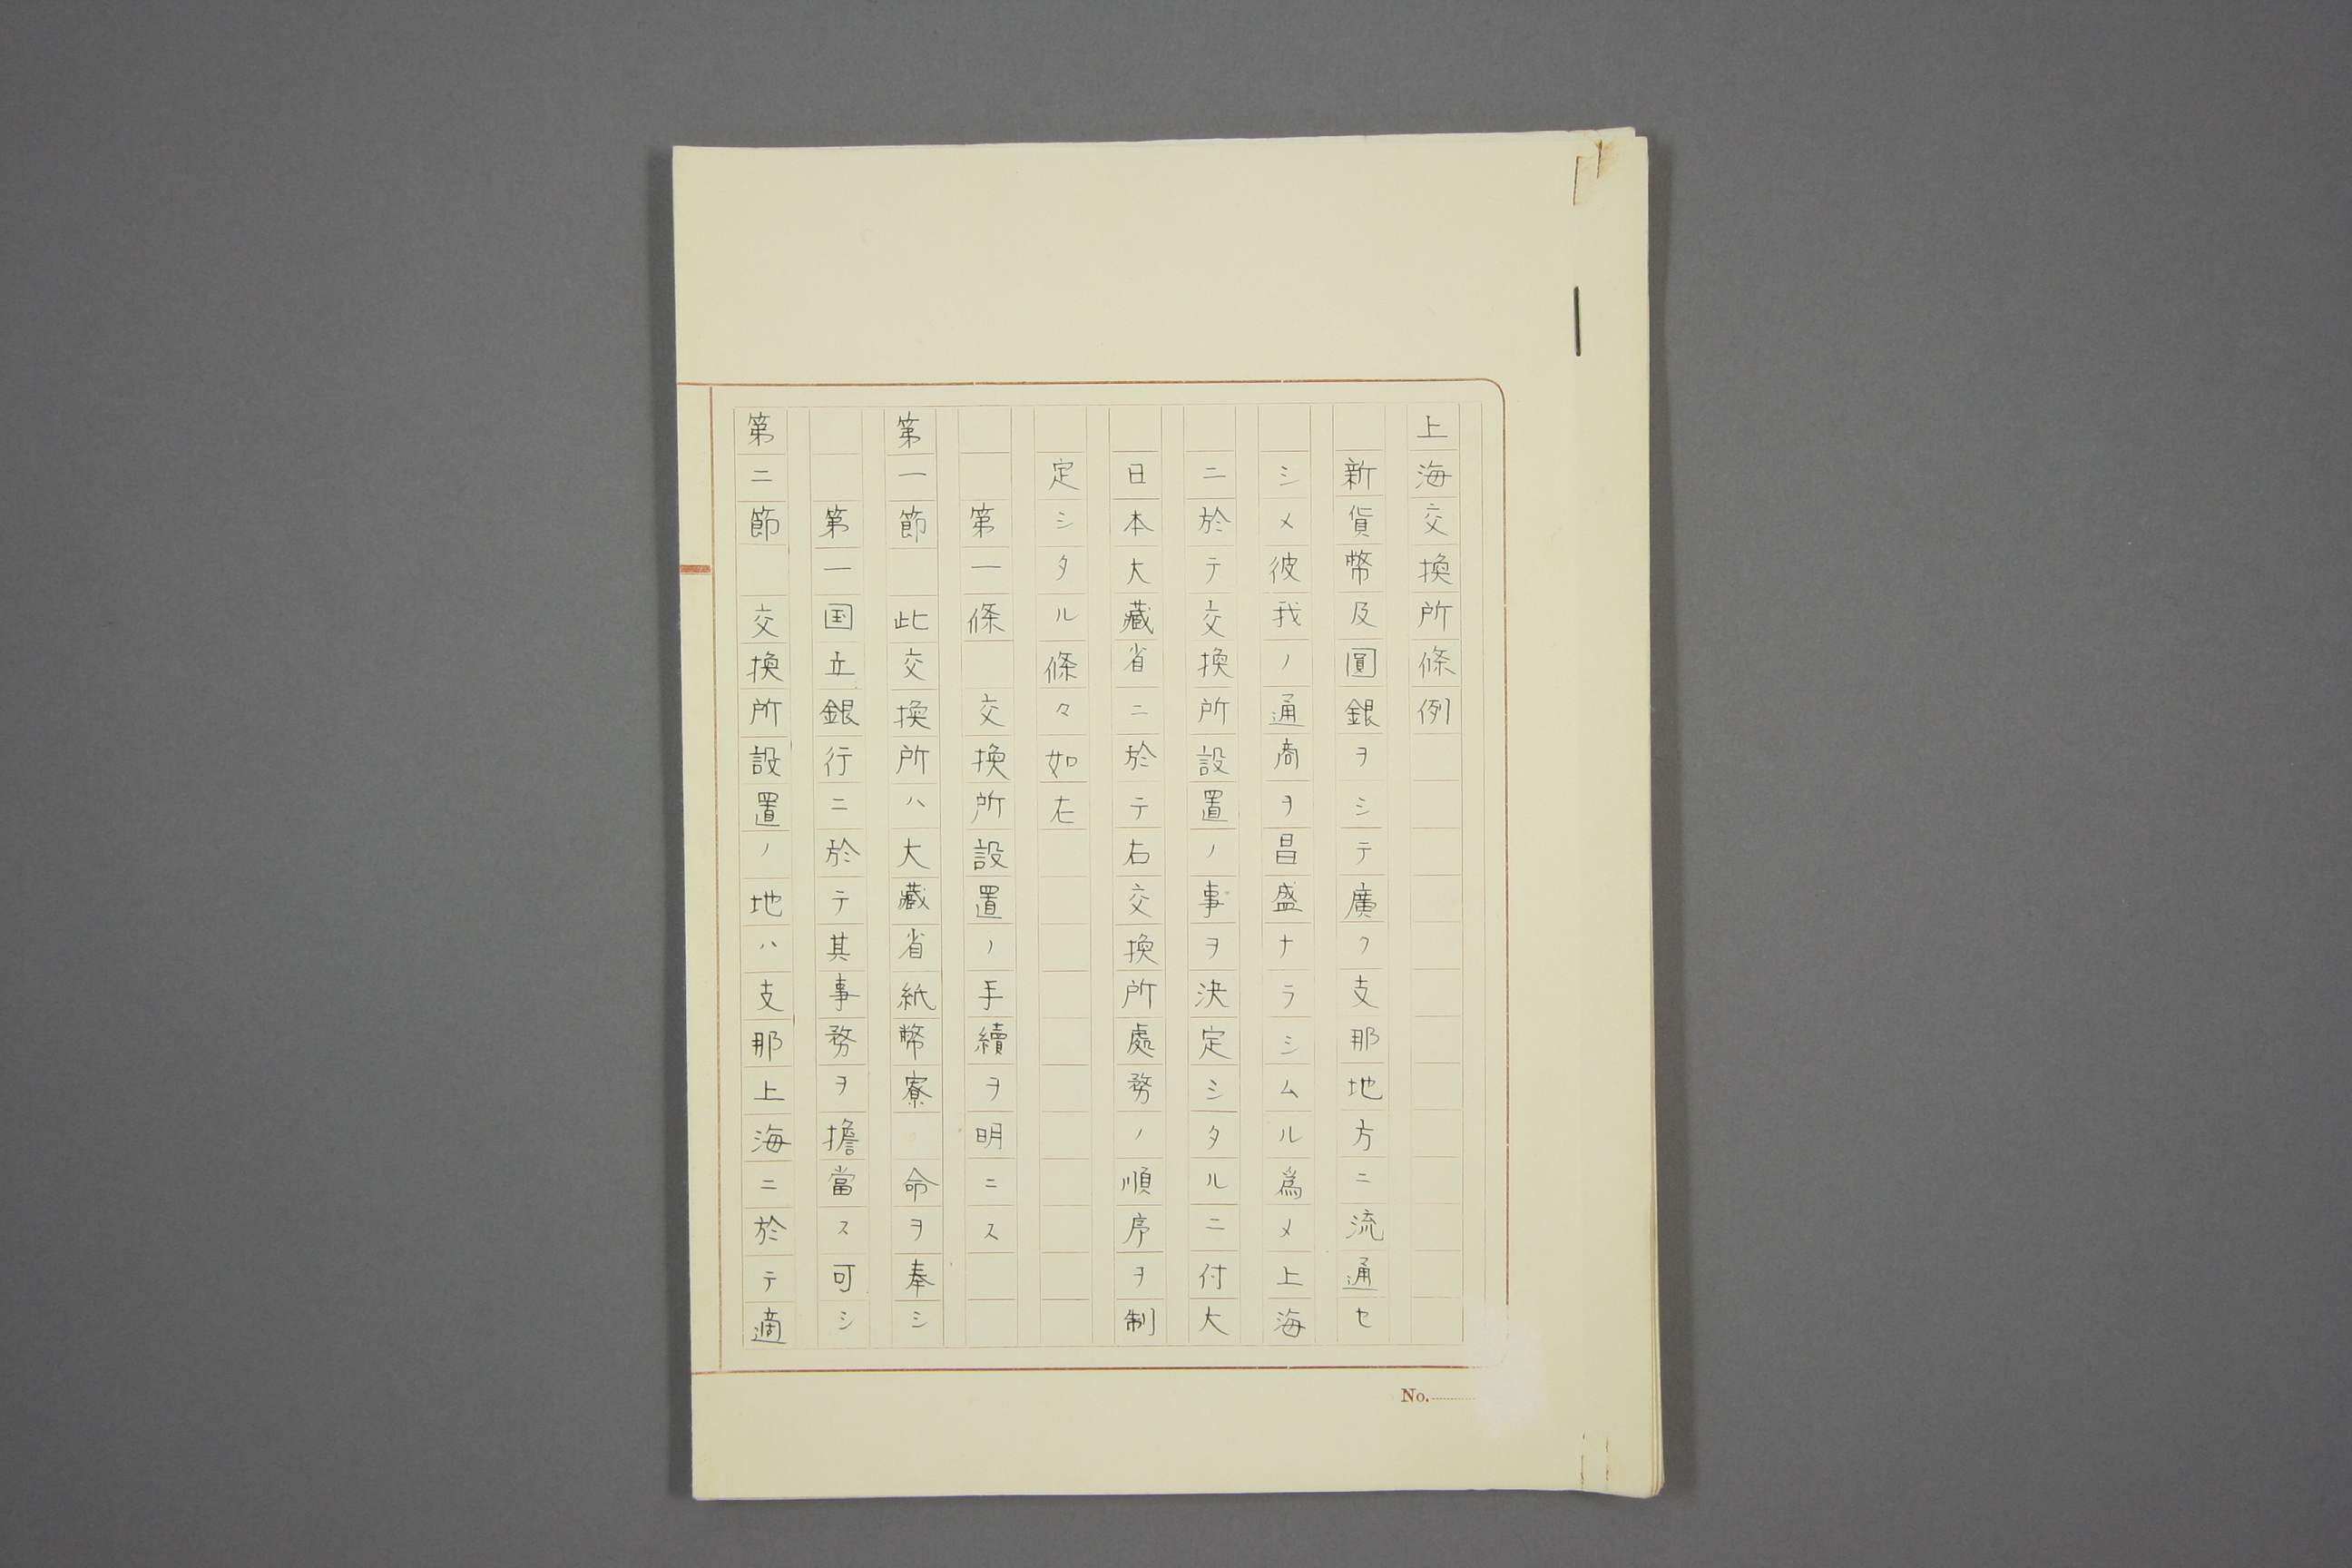 上海交換所條例
新貨幣及圓銀ヲシテ廣ク支那地方ニ流通セ
シメ彼我ノ通商ヲ昌盛ナラシムル爲メ上海
ニ於テ交換所設置ノ事ヲ決定シタルニ付大
日本大藏省ニ於テ右交換所處務ノ順序ヲ制
定シタル條々如左
第一條　交換所設置ノ手續ヲ明ニス
第一節　此交換所ハ大藏省紙幣寮　命ヲ奉シ
第一国立銀行ニ於テ其事務ヲ擔當ス可シ
第二節　交換所設置ノ地ハ支那上海ニ於テ適
No.